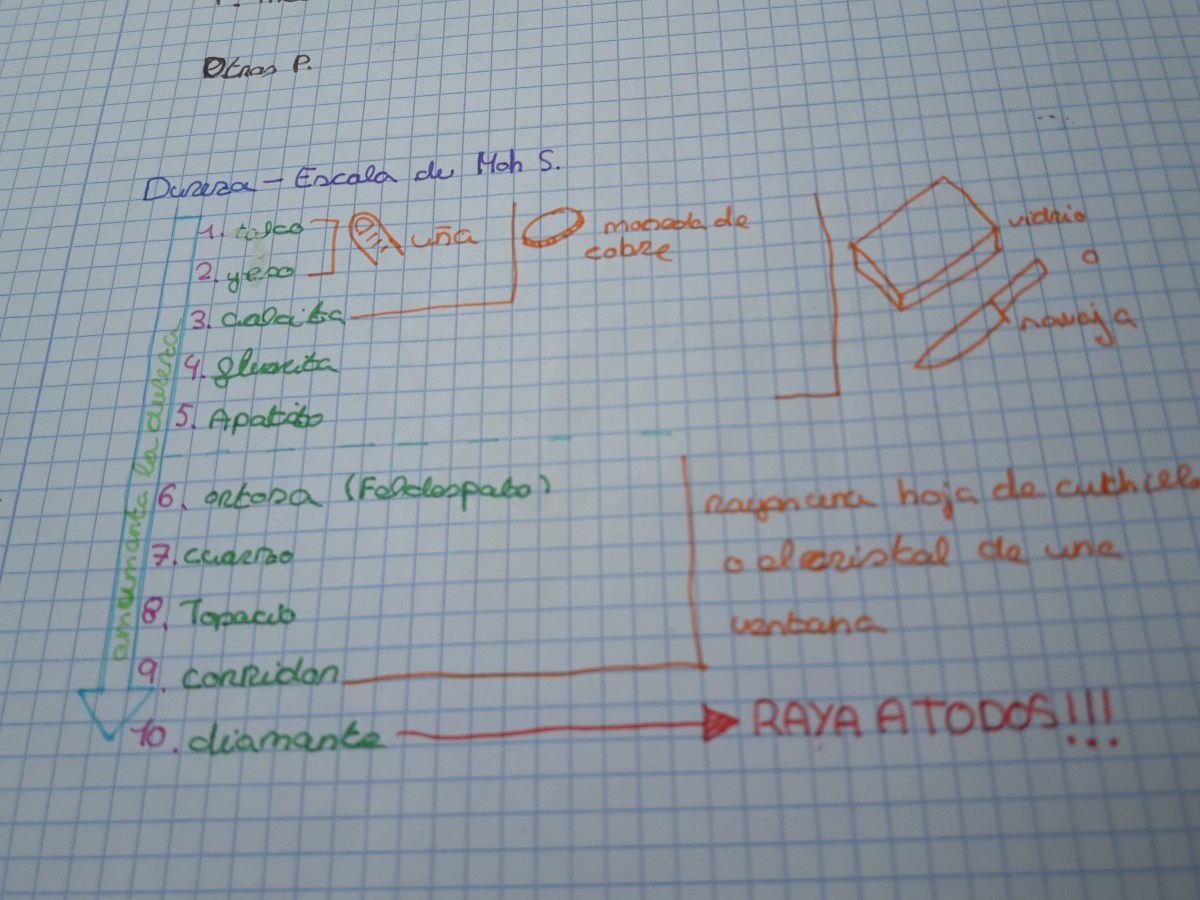 Otras P.
Dureza - Escala de Moh S.
1. talco
2. yeso
uña
moneda de
cobre
vidrio
o
navaja
3. Calcita
4. fluorita
5. Apatito
6. ortosa (Feldespato)
7. cuarzo
8. Topacio
9. corridon
10. diamante
rayan una hoja de cuchcelo
o el cristal de una
ventana
RAYA A TODOS!!!
aumenta la dureza